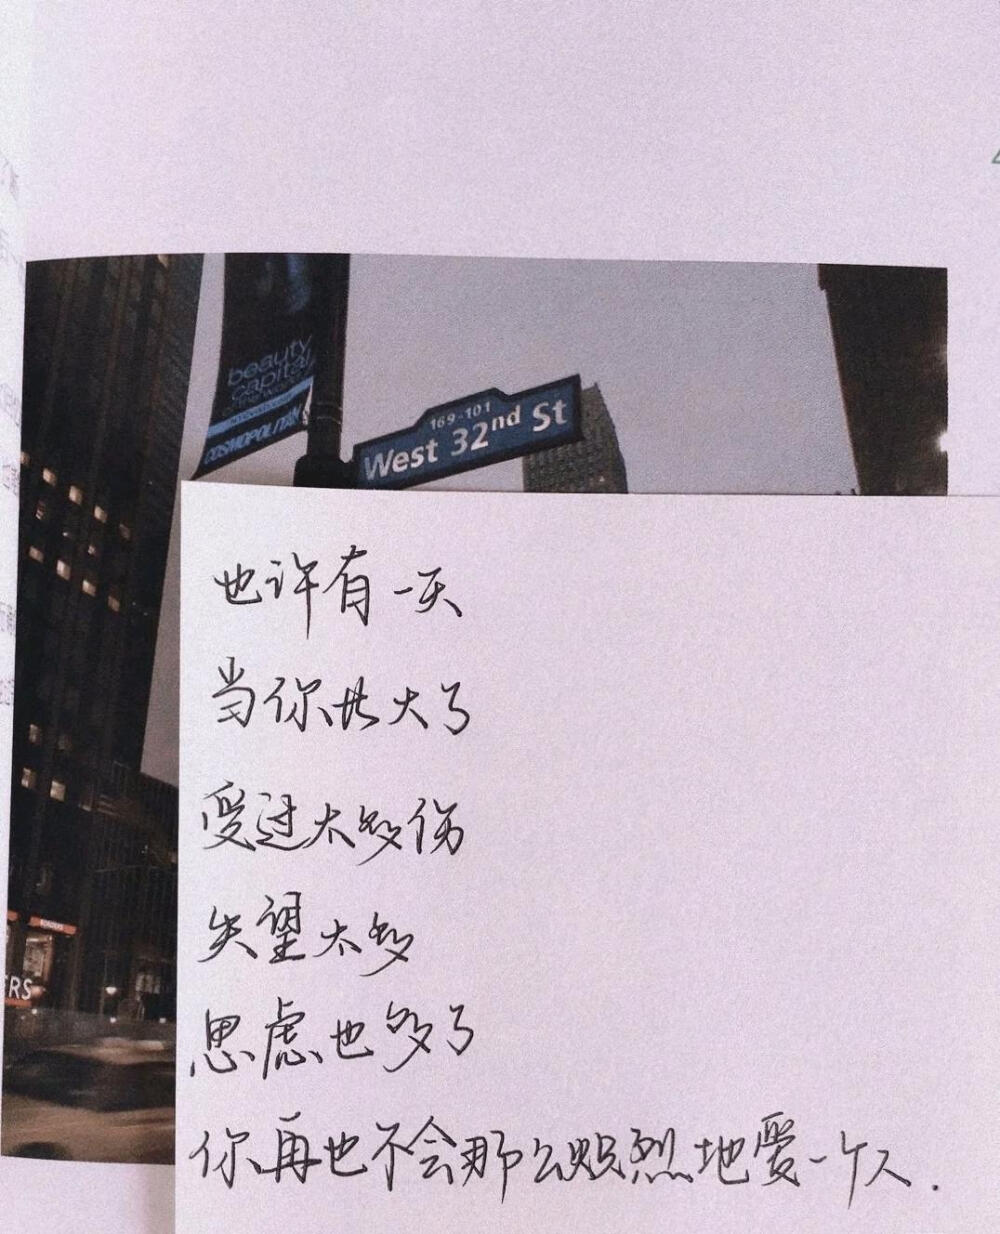 beauty
capital
COSMOPOLITAN
169-101
West 32nd St
ERS
也许有一天
当你长大了
受过太多伤
失望太多
思虑也多了
你再也不会那么炽烈地爱一个人.